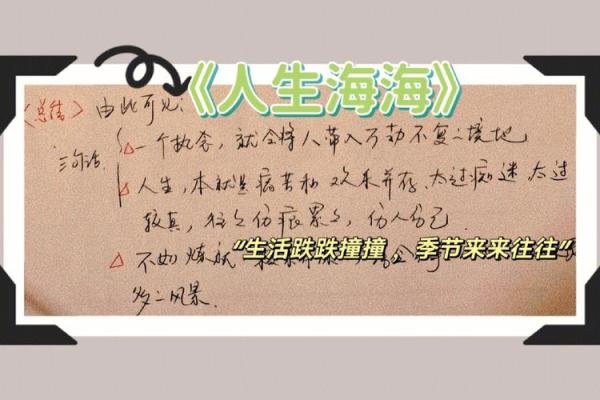 《人生海海》
〈总结〉由此可见:
三句话. △一个执念,就会将人带入万劫不复之境地
△人生,本就是痛苦和欢乐并存,太过痴迷,太过
较真,往往伤痕累累,伤人伤己.
"生活跌跌撞撞，季节来来往往"
△不如炼就
风景.